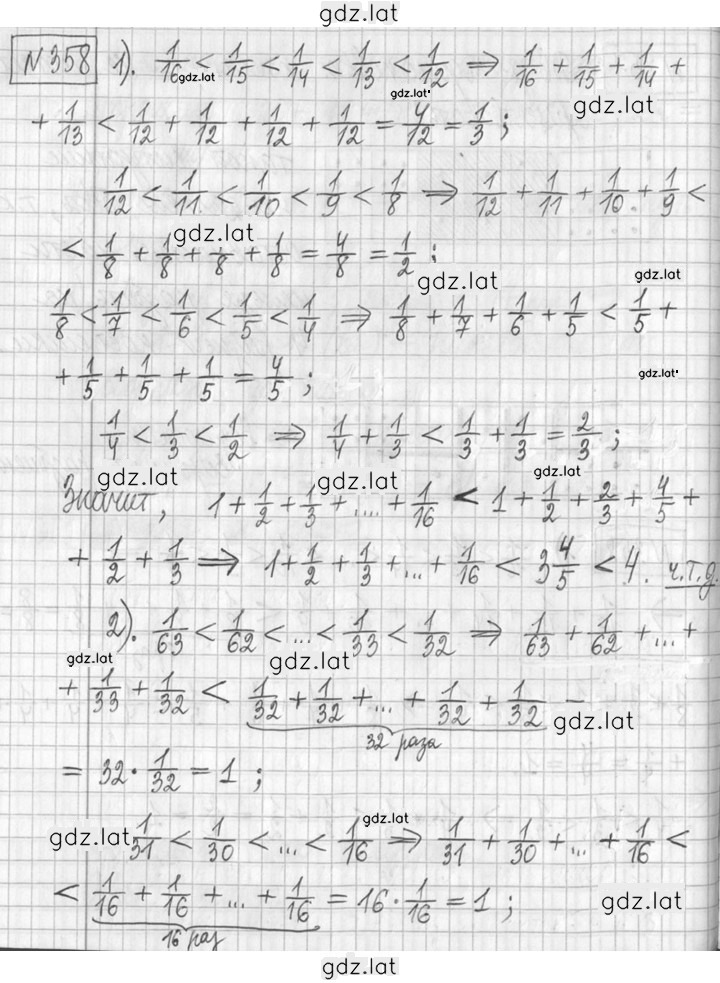 gdz.lat
№358 1). 1/16 < 1/15 < 1/14 < 1/13 < 1/12 ⇒ 1/16 + 1/15 + 1/14 +
gdz.lat
gdz.lat
gdz.lat
+ 1/13 < 1/12 + 1/12 + 1/12 + 1/12 = 4/12 = 1/3 ;
1/12 < 1/11 < 1/10 < 1/9 < 1/8 ⇒ 1/12 + 1/11 + 1/10 + 1/9 <
gdz.lat
< 1/8 + 1/8 + 1/8 + 1/8 = 4/8 = 1/2 ;
gdz.lat
gdz.lat
1/8 < 1/7 < 1/6 < 1/5 < 1/4 ⇒ 1/8 + 1/7 + 1/6 + 1/5 < 1/5 +
+ 1/5 + 1/5 + 1/5 = 4/5 ;
gdz.lat
1/4 < 1/3 < 1/2 ⇒ 1/4 + 1/3 < 1/3 + 1/3 = 2/3 ;
gdz.lat
gdz.lat
gdz.lat
Значит, 1 + 1/2 + 1/3 + .... + 1/16 < 1 + 1/2 + 2/3 + 4/5 +
+ 1/2 + 1/3 ⇒ 1 + 1/2 + 1/3 + ... + 1/16 < 3 4/5 < 4. ч.т.д.
2). 1/63 < 1/62 < ... < 1/33 < 1/32 ⇒ 1/63 + 1/62 + ... +
gdz.lat
gdz.lat
+ 1/33 + 1/32 < 1/32 + 1/32 + ... + 1/32 + 1/32 =
gdz.lat
32 раза
= 32 · 1/32 = 1 ;
gdz.lat
gdz.lat
1/31 < 1/30 < ... < 1/16 ⇒ 1/31 + 1/30 + ... + 1/16 <
< 1/16 + 1/16 + ... + 1/16 = 16 · 1/16 = 1 ;
gdz.lat
16 раз
gdz.lat